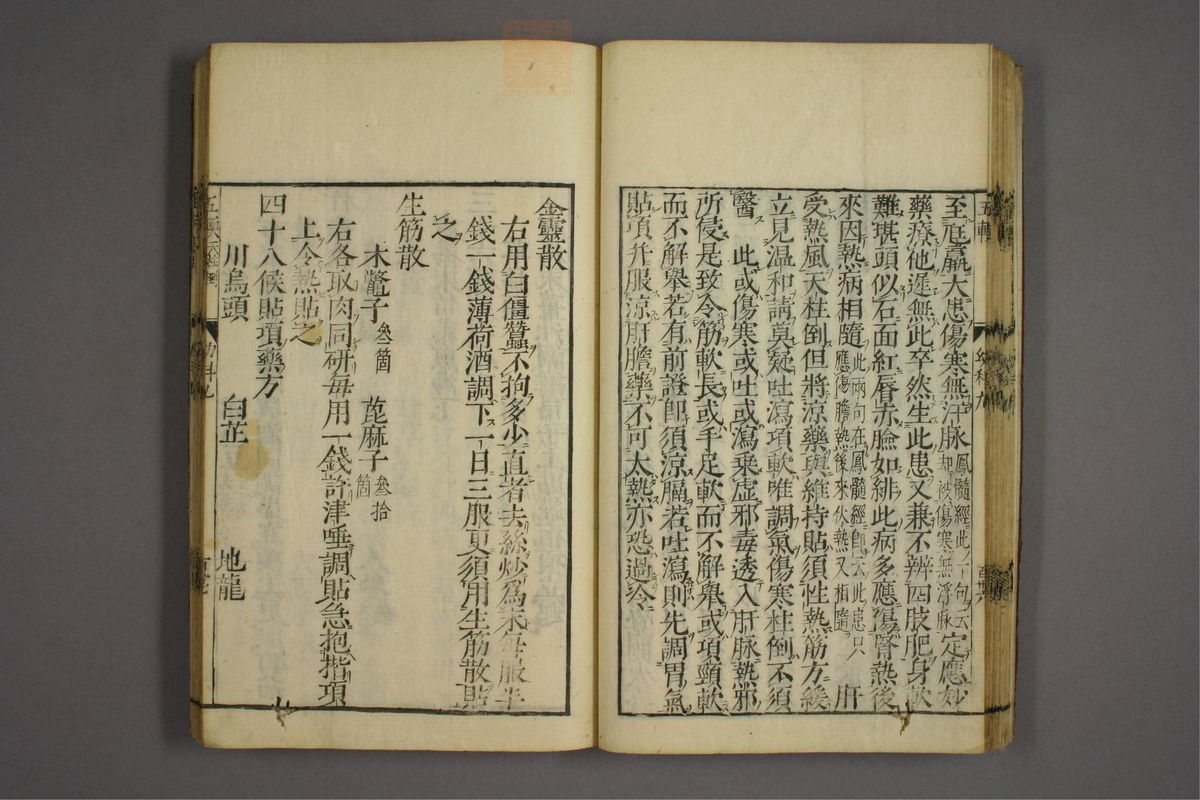 至尫羸大患傷寒無汗脉鳳髓經此一句云却被傷寒無浮脉定應妙
藥療他遲無此卒然生此患又兼不辨四肢肥身軟
難堪頭似石面紅唇赤臉如緋此病多應傷腎熱後
來因熱病相隨此兩句在鳳髓經即云此患只應傷膽熱後來伏熱又相隨肝
受熱風天柱倒但將涼藥與維持貼須性熱筋方緩
立見温和請莫疑吐瀉項軟唯調氣傷寒柱倒不須
醫 此或傷寒或吐或瀉乘虛邪毒透入肝脉熱邪
所侵是致令筋軟長或手足軟而不解舉或項頸軟
而不解舉若有前證即須涼膈若吐瀉則先調胃氣
貼項并服涼肝膽藥不可太熱亦恐過冷
金靈散
右用白僵蠶不拘多少直者去絲炒爲末每服半
錢一錢薄荷酒調下一日三服更須用生筋散貼
之
生筋散
木鼈子叁箇 蓖麻子叁拾箇
右各取肉同研每用一錢許津唾調貼急抱揩項
上令熱貼之
四十八候貼項藥方
川烏頭 白芷 地龍
幼科九
百廿六